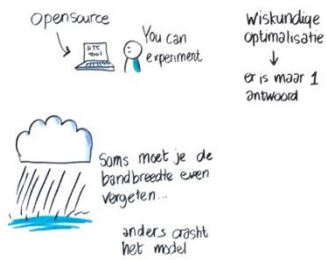 Opensource
DTC
TOOL
You can
experiment
Wiskundige
optimalisatie
er is maar 1
antwoord
Soms moet je de
bandbreedte even
vergeten...
anders crasht
het model